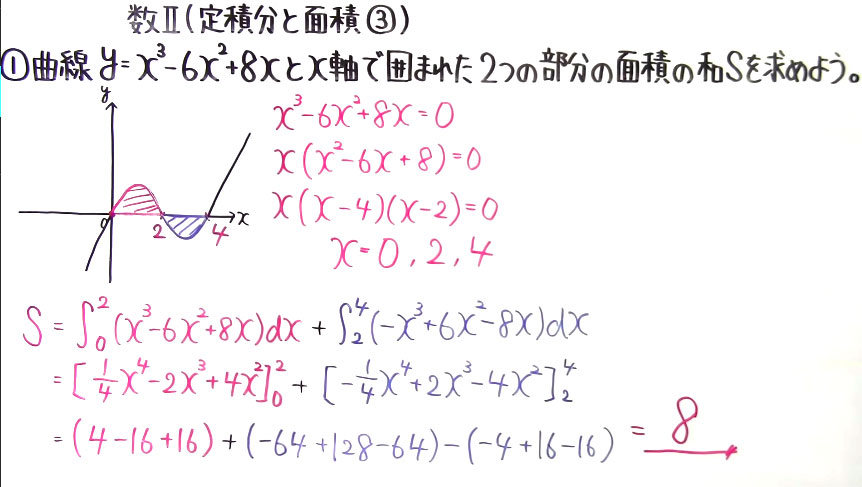 数Ⅱ(定積分と面積③)
①曲線 y=x³-6x²+8xとx軸で囲まれた2つの部分の面積の和Sを求めよう。
y
x³-6x²+8x=0
x(x²-6x+8)=0
x(x-4)(x-2)=0
x=0,2,4
0 2 4 x
S=∫₀²(x³-6x²+8x)dx+∫₂⁴(-x³+6x²-8x)dx
=[1/4x⁴-2x³+4x²]₀²+[-1/4x⁴+2x³-4x²]₂⁴
=(4-16+16)+(-64+128-64)-(-4+16-16)=8